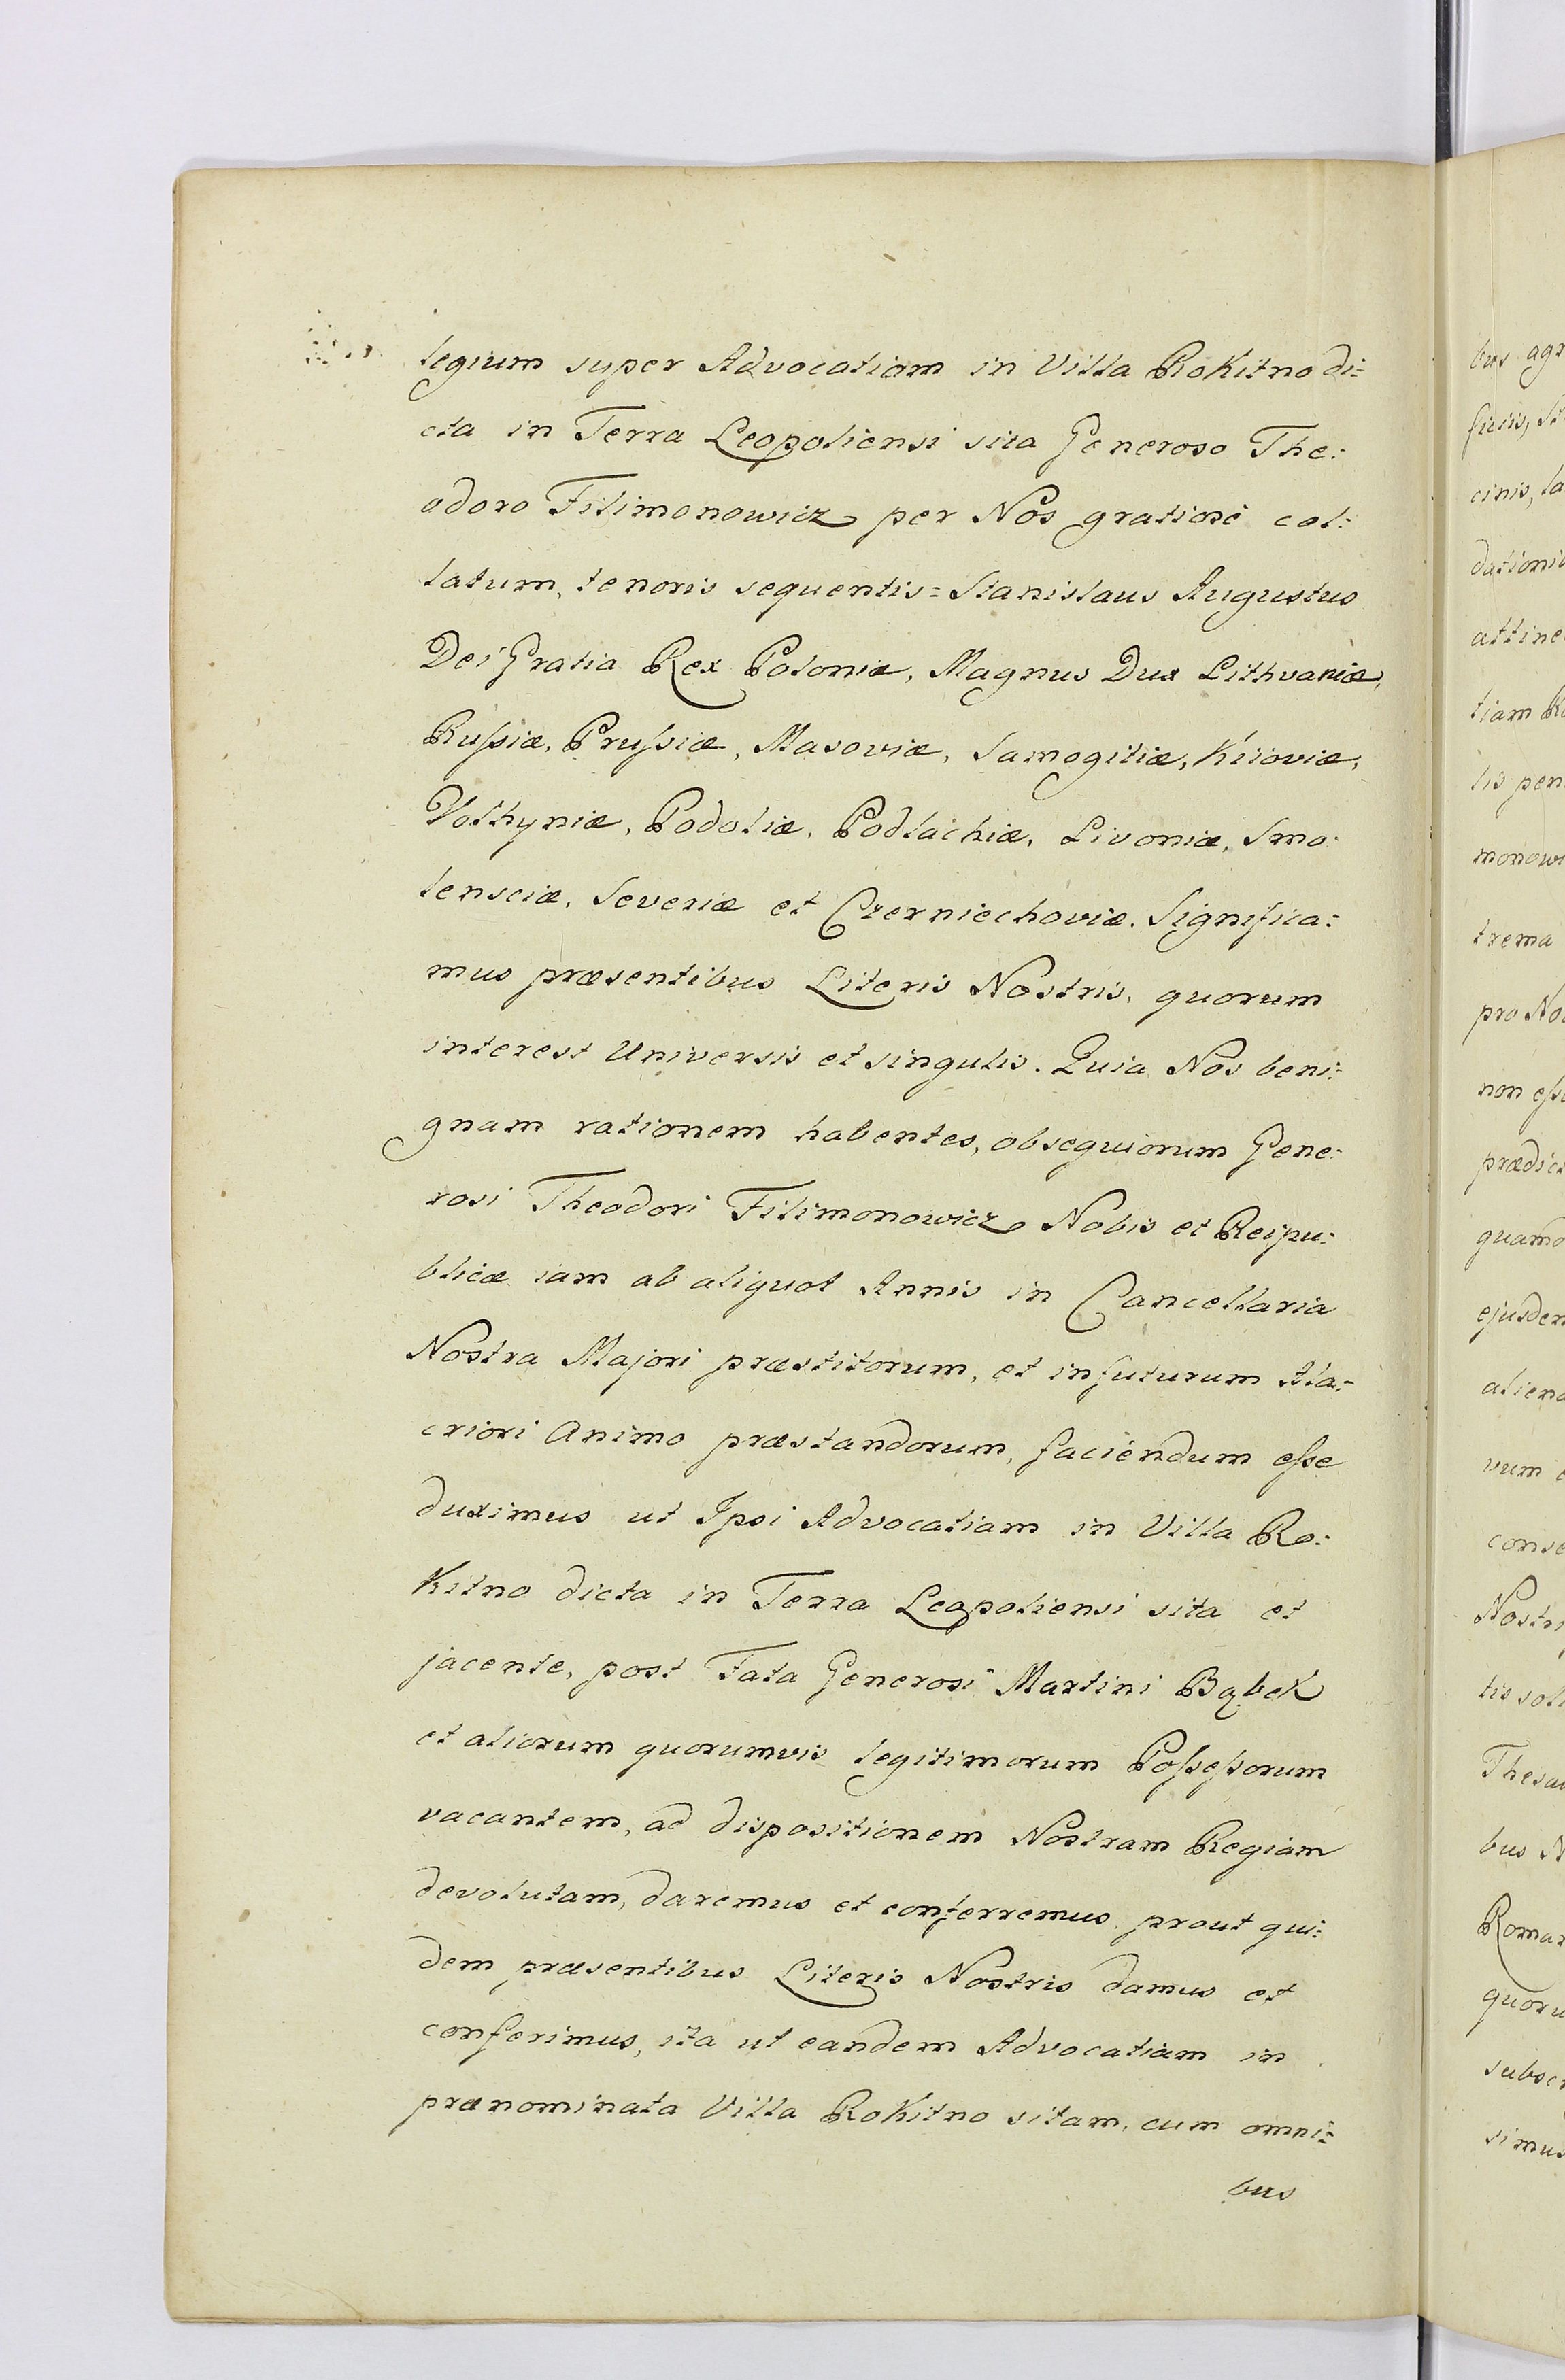 legium super Advocatiam in Villa Rokitno di=
cta in Terra Leopoliensi sita Generoso The=
odoro Filimonowicz per Nos gratiosè col=
latum, tenoris sequentis = Stanislaus Augustus
Dei Gratia Rex Poloniæ, Magnus Dux Lithvaniæ,
Rußiæ, Prußiæ, Masoviæ, Samogitiæ, Kiioviæ,
Volhyniæ, Podoliæ, Podlachiæ, Livoniæ, Smo=
lensciæ, Severiæ et Czerniechoviæ. Significa=
mus præsentibus Literis Nostris, quorum
interest Universis et singulis. Quia Nos beni=
gnam rationem habentes, obsequiorum Gene=
rosi Theodori Filimonowicz Nobis et Reipu=
blicæ iam ab aliquot Annis in Cancellaria
Nostra Majori præstitorum, et in futurum Ala=
criori Animo præstandorum, faciendum eße
duximus ut Ipsi Advocatiam in Villa Ro=
kitno dicta in Terra Leopoliensi sita et
jacente, post Fata Generosi Martini Bąbek
et aliorum quorumvis legitimorum Poßeßorum
vacantem, ad dispositionem Nostram Regiam
devolutam, daremus et conferremus, prout qui=
dem præsentibus Literis Nostris damus et
conferimus, ita ut eandem Advocatiam in
prænominata Villa Rokitno sitam, cum omni=
bus
bus agr
cinis, la
dationi
attine
tiam Ro
lis pen
monowi
trema
pro No
non eße
prædict
quamd
ejusdem
aliena
vum
conse
Nostri
tis soli
Thesau
bus N
Roman
quoru
subscr
simus